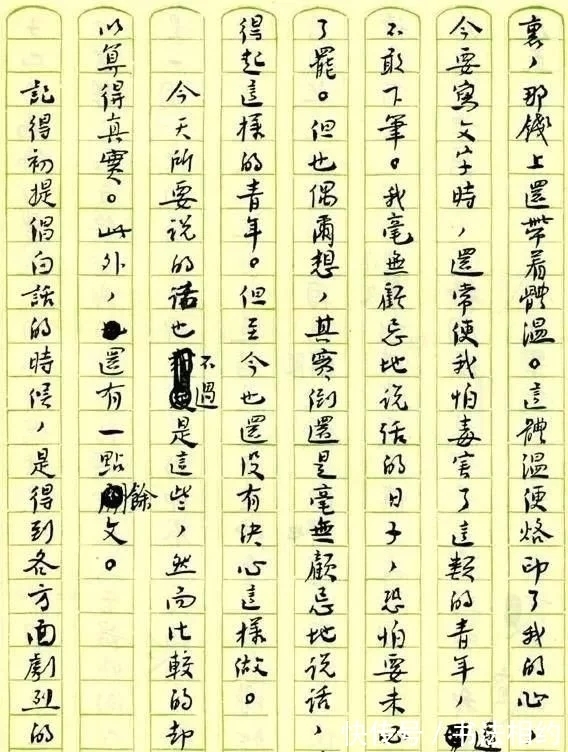 裏，那錢上還帶着體溫。這體溫便烙印了我的心，
今要寫文字時，還常使我怕毒害了這類的青年，
不敢下筆。我毫無顧忌地說話的日子，恐怕要未
了罷。但也偶爾想，其實倒還是毫無顧忌地說話，
得起這樣的青年。但至今也還没有決心這樣做。
今天所要說的話也不過是這些，然而比較的却
以算得真實。此外，還有一點餘文。
記得初提倡白話的時候，是得到各方面劇烈的